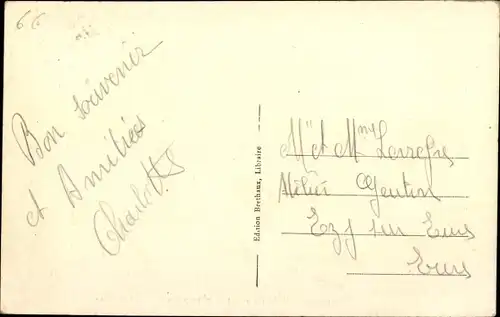 Bon souvenir
et Amitiés
Charlotte
Edition Berthaux, Libraire
Mr et Mme
Atelier Gentin
Ezy sur Eure
Eure